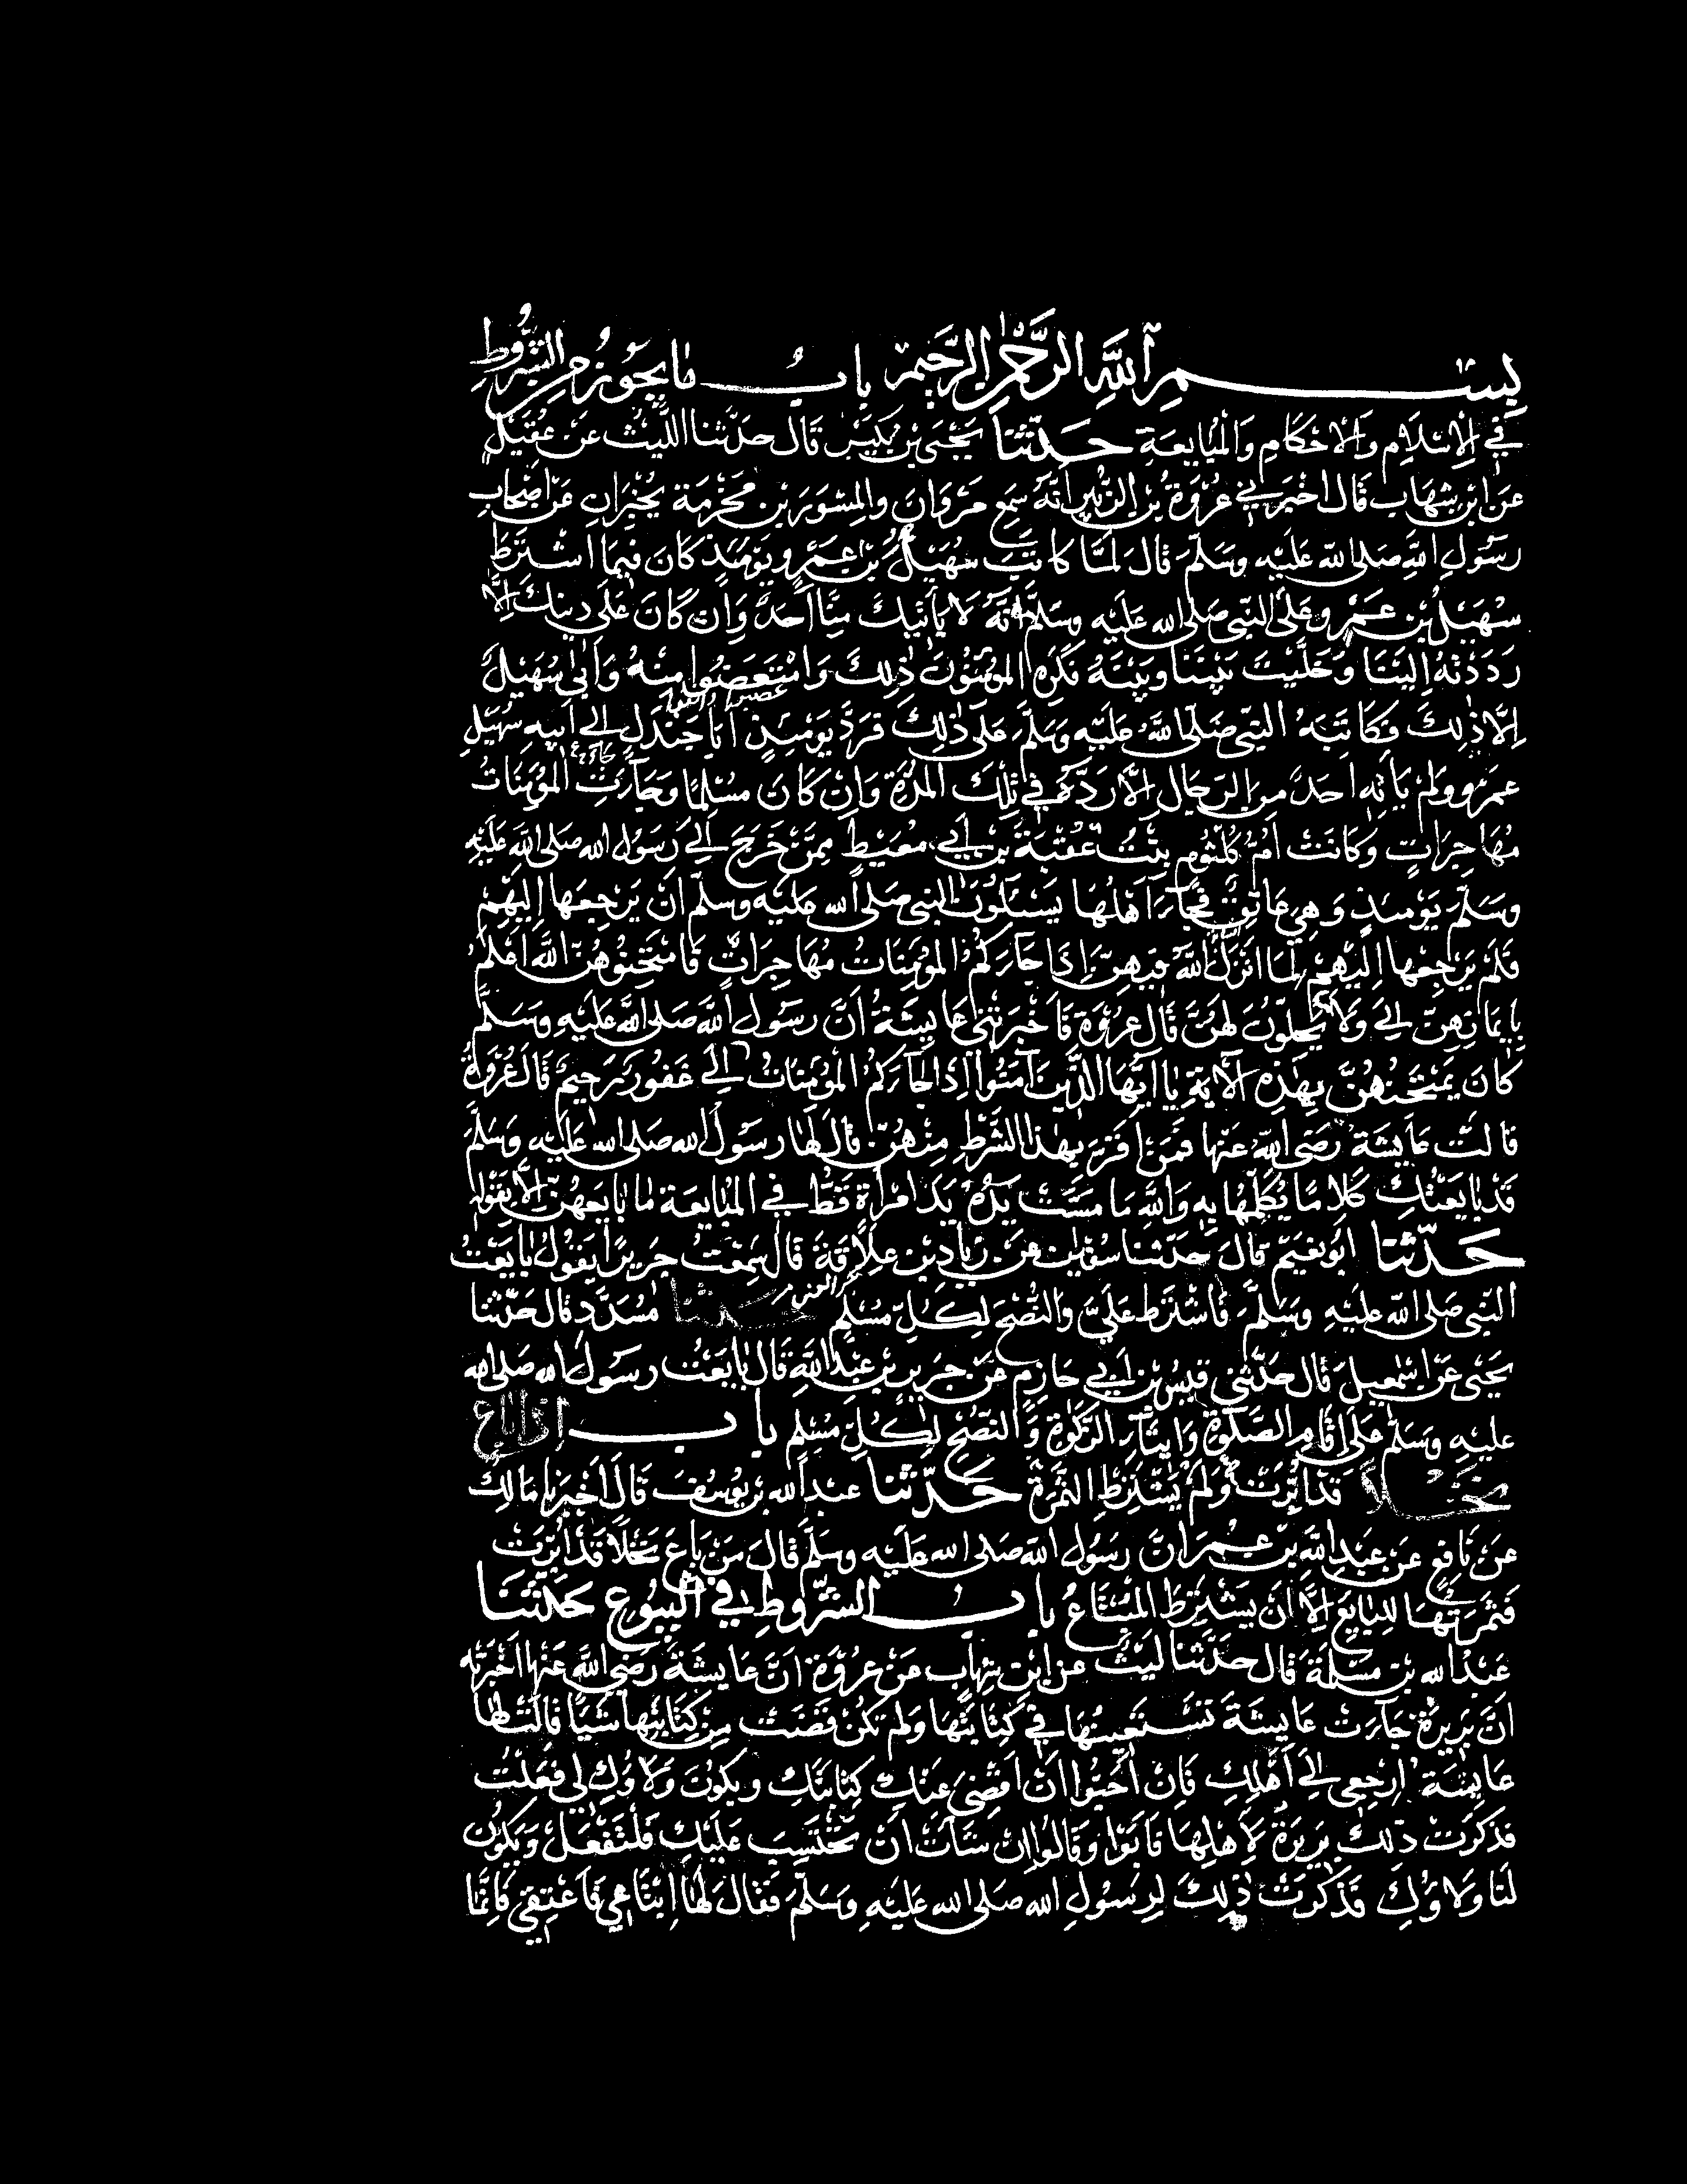 بسم الله الرحمن الرحيم باب ما يجوز من الشروط
في الاسلام والاحكام والمبايعة حدثنا يحيى بن بكير قال حدثنا الليث عن عقيل
عن ابن شهاب قال اخبرني عروة بن الزبير انه سمع مروان والمسور بن مخرمة يخبران عن اصحاب
رسول الله صلى الله عليه وسلم قال لما كاتب سهيل بن عمرو يومئذ كان فيما اشترط
سهيل بن عمرو على النبي صلى الله عليه وسلم انه لا يأتيك منا احد وان كان على دينك الا
رددته الينا وخليت بيننا وبينه فكره المومنون ذلك وامتعضوا منه وابى سهيل
الا ذلك فكاتبه النبي صلى الله عليه وسلم على ذلك فرد يومئذ ابا جندل الى ابيه سهيل
عمرو ولم يأته احد من الرجال الا رده في تلك المدة وان كان مسلما وجآءت المؤمنات
مهاجرات وكانت ام كلثوم بنت عقبة بن ابي معيط ممن خرج الى رسول الله صلى الله عليه
وسلم يومئذ وهي عاتق فجآء اهلها يسئلون النبي صلى الله عليه وسلم ان يرجعها اليهم
فلم يرجعها اليهم لما انزل الله فيهن اذا جآءكم المؤمنات مهاجرات فامتحنوهن الله اعلم
بايمانهن الى ولا يحلون لهن قال عروة فاخبرتني عايشة ان رسول الله صلى الله عليه وسلم
كان يمتحنهن بهذه الآية يا ايها الذين آمنوا اذا جآءكم المؤمنات الى غفور رحيم قال عروة
قالت عايشة رضى الله عنها فمن اقر بهذا الشرط منهن قال لها رسول الله صلى الله عليه وسلم
قد بايعتك كلاما يكلمها به والله ما مست يده يد امرأة قط في المبايعة ما بايعهن الا بقوله
حدثنا ابو نعيم قال حدثنا سفين عن زياد بن علاقة قال سمعت جريرا يقول بايعت
النبي صلى الله عليه وسلم فاشترط علي والنصح لكل مسلم حدثنا مسدد قال حدثنا
يحيى عن اسمعيل قال حدثني قيس بن ابي حازم عن جرير بن عبد الله قال بايعت رسول الله صلى الله
عليه وسلم على اقام الصلوة وايتآء الزكوة والنصح لكل مسلم باب اذا باع
نخلا قد ابرت ولم يشترط الثمرة حدثنا عبد الله بن يوسف قال اخبرنا مالك
عن نافع عن عبد الله بن عمر ان رسول الله صلى الله عليه وسلم قال من باع نخلا قد ابرت
فثمرتها للبايع الا ان يشترط المبتاع باب الشروط في البيوع حدثنا
عبد الله بن مسلمة قال حدثنا ليث عن ابن شهاب عن عروة ان عايشة رضي الله عنها اخبرته
ان بريرة جآءت عايشة تستعينها في كتابتها ولم تكن قضت من كتابتها شيئا قالت لها
عايشة ارجعى الى اهلك فان احبوا ان اقضى عنك كتابتك ويكون ولاؤك لي فعلت
فذكرت ذلك بريرة لاهلها فابوا وقالوا ان شات ان تحتسب عليك فلتفعل ويكون
لنا ولاؤك فذكرت ذلك لرسول الله صلى الله عليه وسلم فقال لها ابتاعي فاعتقي فانما